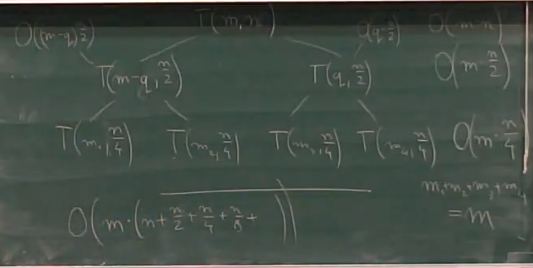 O((m-q)n/2) T(m,n) O(q·n/2) O(m·n)
T(m-q, n/2) T(q, n/2) O(m·n/2)
T(m₁, n/4) T(m₂, n/4) T(m₃, n/4) T(m₄, n/4) O(m·n/4)
m₁+m₂+m₃+m₄
= m
O(m·(n+n/2+n/4+n/8+ ))